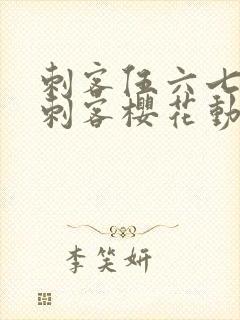 刺客伍六七
刺客樱花動
李笑妍